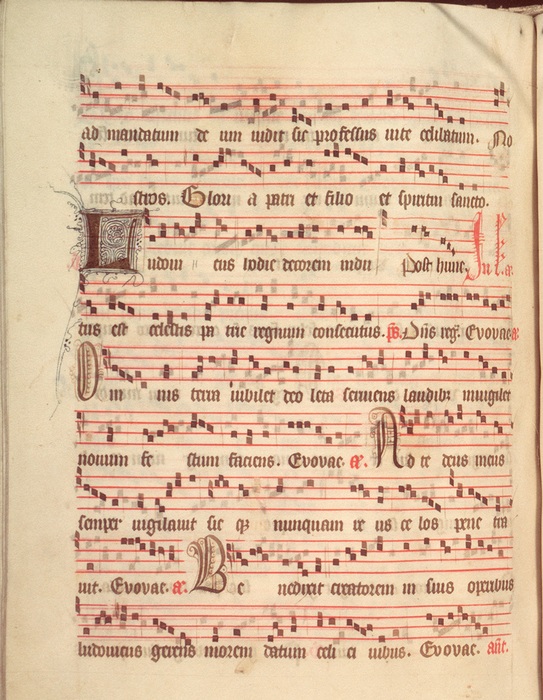 ad mandatum de um uidit sic professus uite celibatum. No
stros. Glori a patri et filio et spiritui sancto.
Ludoui cus hodie decorem indu Post hunc. In l. a.
tus est celestis pa trie regnum consecutus. ps. Dns reg. Evovae. a.
Om nis terra iubilet deo leta seruiens laudibz inuigilet
nouum fe stum faciens. Evovae. a. Ad te deus meus
semper uigilauit sic qz nunquam re us ce los pene tra
uit. Evovae. a. Be nedixit creatorem in suis operibus
ludouicus gerens morem datum celi ci uibus. Evovae. ant.